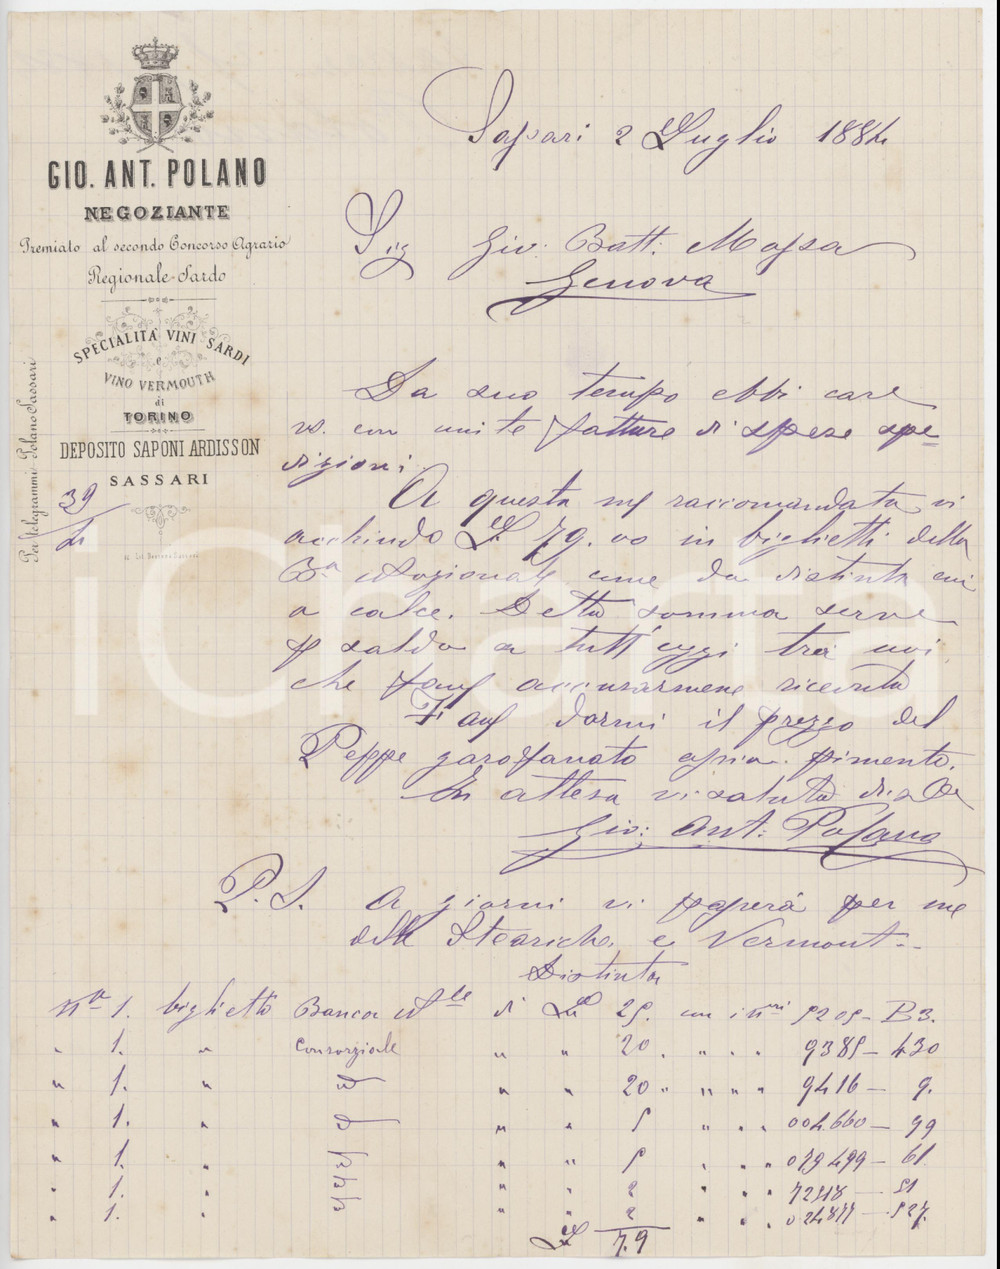 GIO. ANT. POLANO
NEGOZIANTE
Premiato al secondo Concorso Agrario
Regionale Sardo
SPECIALITÀ VINI SARDI
e
VINO VERMOUTH
di
TORINO
DEPOSITO SAPONI ARDISSON
SASSARI
Per telegrammi Polano Sassari
39
Sassari 2 Luglio 1884
Sig Gio: Batt: Massa
Genova
Da suo tempo ebbi care
vs. con unite fatture di spese spe=
dizioni
A questa raccomandata vi
acchiudo L. 79.00 in biglietti della
Ba Nazionale come da distinta qui
a calce. Detta somma serve
p saldo a tutt'oggi tra noi
che accusarmene ricevuta
darmi il prezzo del
Peppe garoffanato ossia pimento.
In attesa vi saluto
Gio: Ant: Polano
P. S. A giorni vi pagerà per me
delle Steariche e Vermout
Distinta
no 1. biglietto Banca Nle di L 25. con i nri 5205 - B3.
" 1. " Consorziale " " 20. " " " 9385 - 430
" 1. " d " " 20 " " " " 9416 - 9.
" 1. " d " " 5 " " " 004.660 - 99
" 1. " " " 5 " " " 079499 - 61
" 1. " " " 2 " " " 72518 - 51
" 1. " " " 2 " " " 024877 - 527.
L 79
iCharta